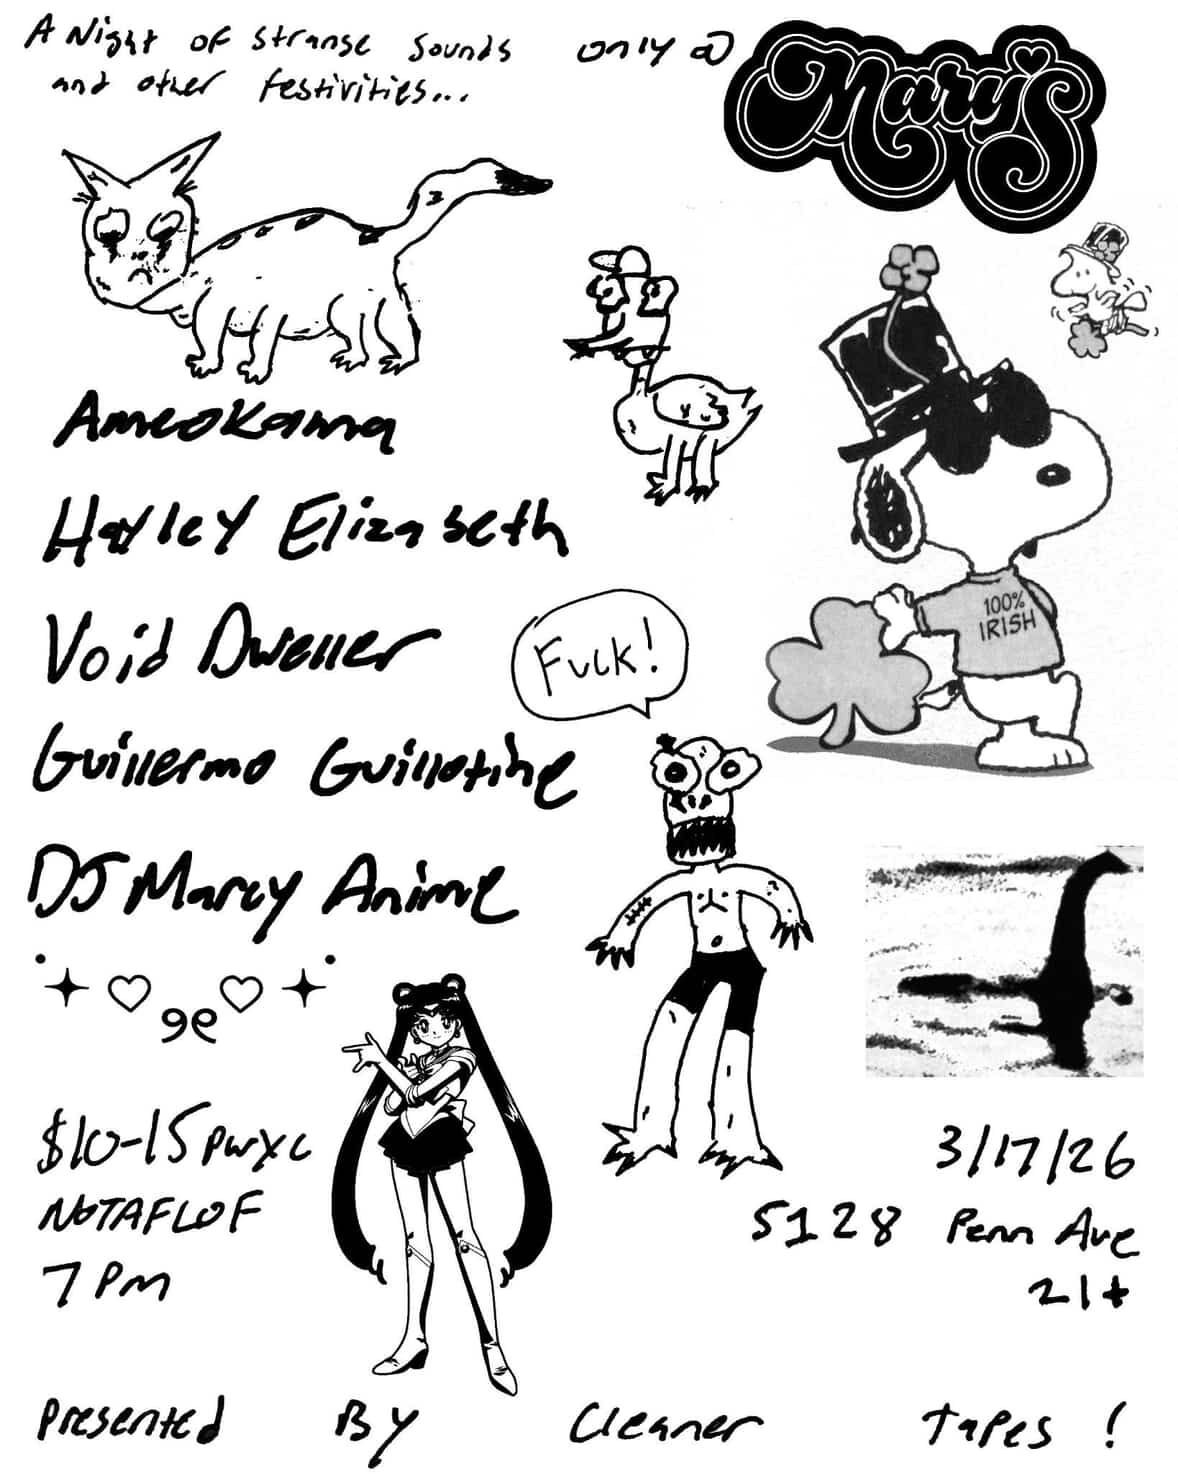 A Night of strange sounds
and other festivities...
only @
Mary's
Ameokama
Hayley Elizabeth
Void Dweller
Guillermo Guillotine
DJ Marcy Anime
100%
IRISH
Fuck!
$10-15 PWYC
NOTAFLOF
7 PM
3/17/26
5128 Penn Ave
21+
Presented By Cleaner Tapes!